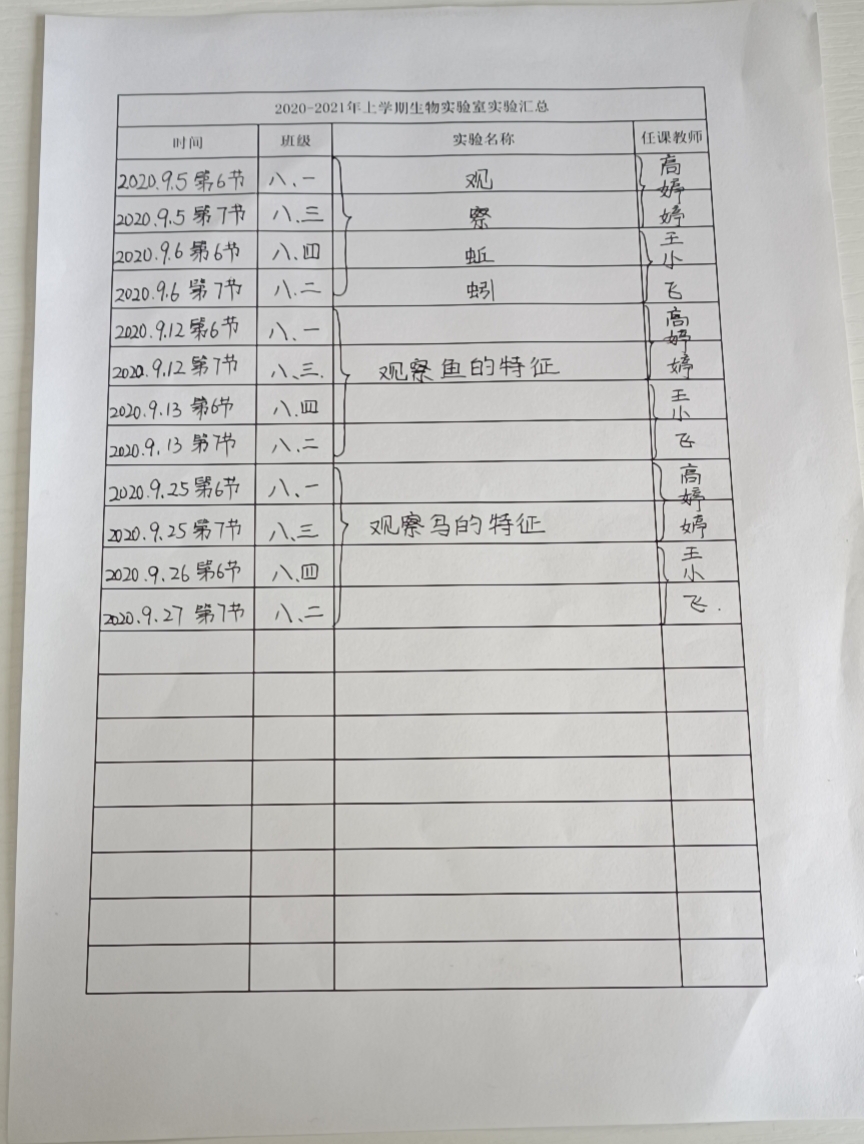 2020-2021年上学期生物实验室实验汇总
时间 班级 实验名称 任课教师
2020.9.5 第6节 八、一 观 高婷
2020.9.5 第7节 八、三 察 婷
2020.9.6 第6节 八、四 蚯 王小
2020.9.6 第7节 八、二 蚓 飞
2020.9.12 第6节 八、一 高婷
2020.9.12 第7节 八、三. 观察鱼的特征 婷
2020.9.13 第6节 八、四 王小
2020.9.13 第7节 八、二 飞
2020.9.25 第6节 八、一 高婷
2020.9.25 第7节 八、三 观察马的特征 婷
2020.9.26 第6节 八、四 王小
2020.9.27 第7节 八、二 飞.